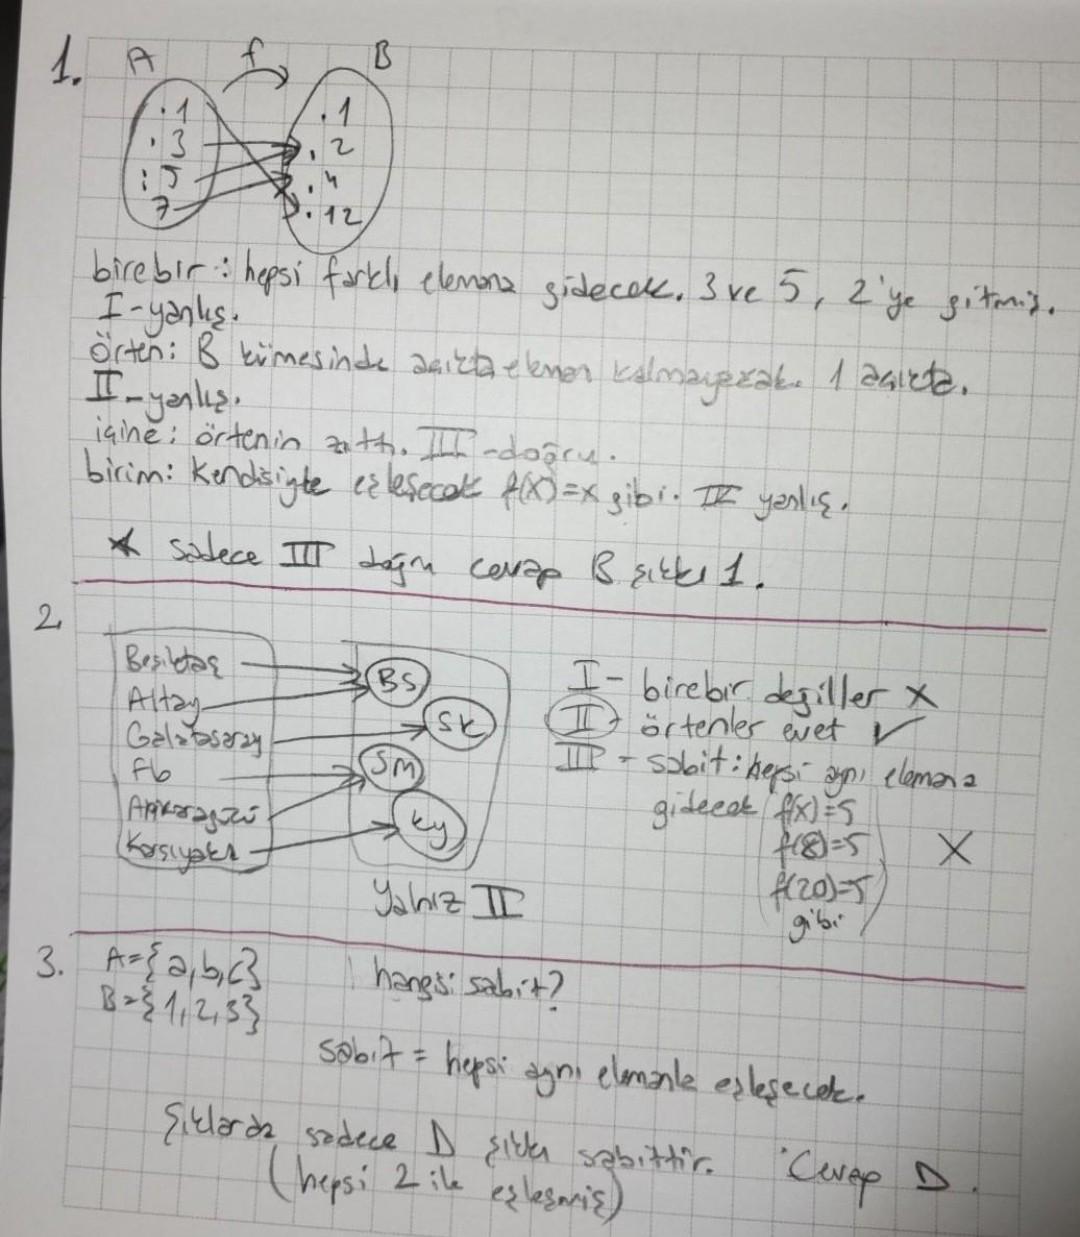 1.
A f B
.1 .1
.3 .2
:5 .4
7 .12
birebir: hepsi farklı elemana gidecek. 3 ve 5, 2'ye gitmiş.
I-yanlış.
örten: B kümesinde açıkta eleman kalmayacak. 1 açıkta.
II-yanlış.
içine: örtenin zıttı. III-doğru.
birim: kendisiyle eşleşecek f(x)=x gibi. IV yanlış.
* sadece III doğru cevap B şıkkı 1.
2.
Beşiktaş
Altay
Galatasaray
Fb
Ankaragücü
Karsıyaka
BS
SK
SM
KY
I - birebir değiller X
II - örtenler evet ✓
III - sabit: hepsi aynı elemana
gidecek f(x)=5
f(8)=5 X
f(20)=5
gibi
Yalnız II
3. A={a,b,c} hangisi sabit?
B={1,2,3}
sabit = hepsi aynı elemanla eşleşecek.
Şıklarda sadece D şıkkı sabittir. Cevap D.
(hepsi 2 ile eşleşmiş)